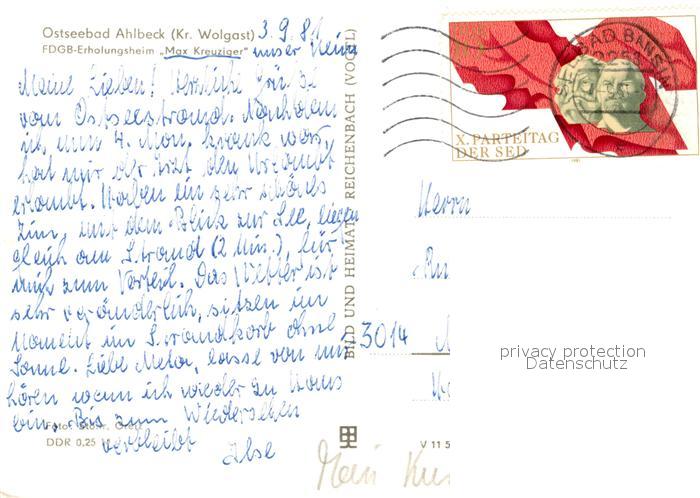 Ostseebad Ahlbeck (Kr. Wolgast) 3.9.81
FDGB-Erholungsheim „Max Kreuziger" unser Heim
Meine Lieben! Herzliche Grüße
vom Ostseestrand. Nachdem
ich nun 4 Mon. krank war,
hat mir der Arzt den Urlaub
erlaubt. Haben ein sehr schönes
Zim. mit dem Blick zur See, liegen
gleich am Strand (2 Min.), für
auch zum Vorteil. Das Wetter ist
sehr veränderlich, sitzen im
Moment im Strandkorb ohne
Sonne. Liebe Meta, lasse von mir
hören wenn ich wieder zu Haus
bin. Bis zum Wiedersehen
verbleibt Ilse
Foto: Stöhr,
DDR 0,25 M
BILD UND HEIMAT REICHENBACH (VOGTL)
V 11 5
X. PARTEITAG
DER SED
1981
SEEBAD BANSIN
Herrn
3014
privacy protection
Datenschutz
Mein